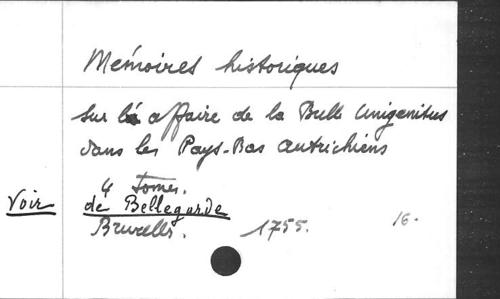 Mémoires historiques
sur l'affaire de la Bulle Unigenitus
dans les Pays-Bas autrichiens
4 tomes.
Voir de Bellegarde
Bruxelles. 1755. 16.